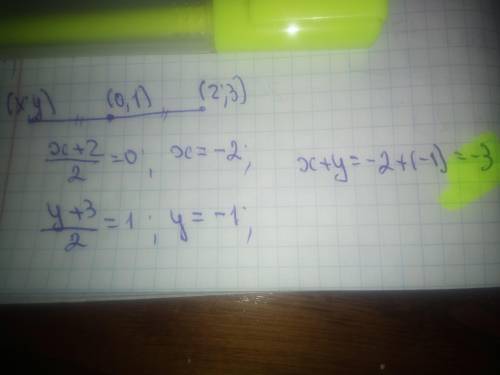 (x;y) (0,1) (2;3)
x+2/2=0; x=-2;
x+y=-2+(-1)=-3
y+3/2=1; y=-1;